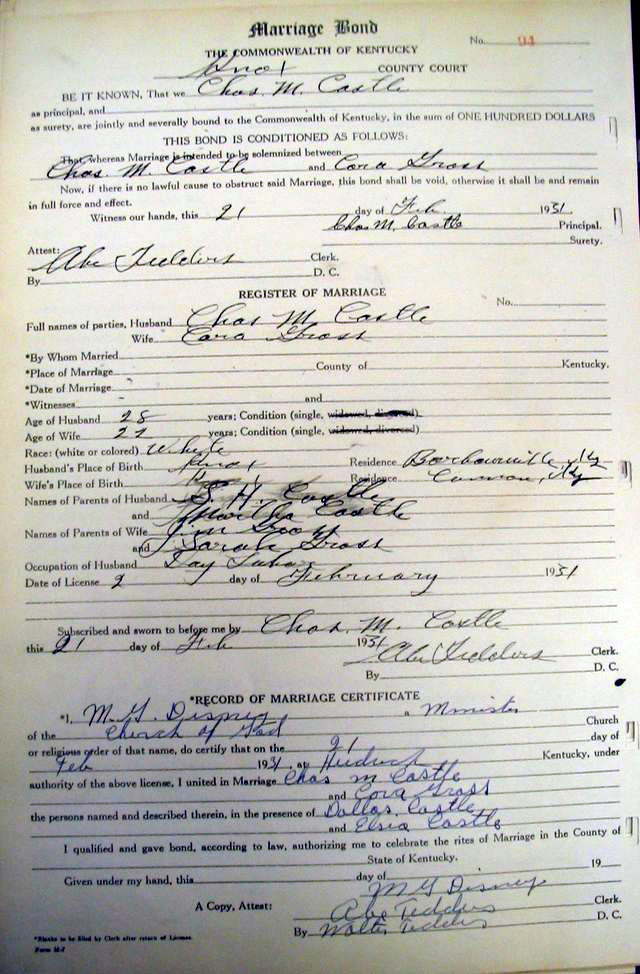 Marriage Bond
No. 94
THE COMMONWEALTH OF KENTUCKY
Knox COUNTY COURT
BE IT KNOWN, That we Chas. M. Castle
as principal, and
as surety, are jointly and severally bound to the Commonwealth of Kentucky, in the sum of ONE HUNDRED DOLLARS
THIS BOND IS CONDITIONED AS FOLLOWS:
That whereas Marriage is intended to be solemnized between
Chas. M. Castle and Cora Gross
Now, if there is no lawful cause to obstruct said Marriage, this bond shall be void, otherwise it shall be and remain
in full force and effect.
Witness our hands, this 21 day of Feb. 1931.
Chas M. Castle Principal.
Surety.
Attest:
Abe Fedders Clerk.
By D. C.
REGISTER OF MARRIAGE
No.
Full names of parties, Husband Chas M. Castle
Wife Cora Gross
*By Whom Married
*Place of Marriage County of Kentucky.
*Date of Marriage
*Witnesses and
Age of Husband 28 years; Condition (single, widowed, divorced)
Age of Wife 22 years; Condition (single, widowed, divorced)
Race: (white or colored) White
Husband's Place of Birth Knox Residence Barbourville, Ky
Wife's Place of Birth Residence Cannon, Ky
Names of Parents of Husband S. H. Castle
and Martha Castle
Names of Parents of Wife Jim Gross
and Sarah Gross
Occupation of Husband Day Labor
Date of License 2 day of February 1931
Subscribed and sworn to before me by Chas. M. Castle
this 21 day of Feb 1931
Abe Fedders Clerk.
By D. C.
*RECORD OF MARRIAGE CERTIFICATE
*I, M. G. Disney a Minister Church
of the Church of God day of
or religious order of that name, do certify that on the 21
Feb 1931, at Heidrick Kentucky, under
authority of the above license, I united in Marriage Chas M Castle
and Cora Gross
the persons named and described therein, in the presence of Dallas Castle
and Elsia Castle
I qualified and gave bond, according to law, authorizing me to celebrate the rites of Marriage in the County of
State of Kentucky.
Given under my hand, this day of 19
M G Disney
A Copy, Attest: Abe Fedders Clerk.
By Walter Fedders D. C.
*Blanks to be filled by Clerk after return of License.
Form M-2